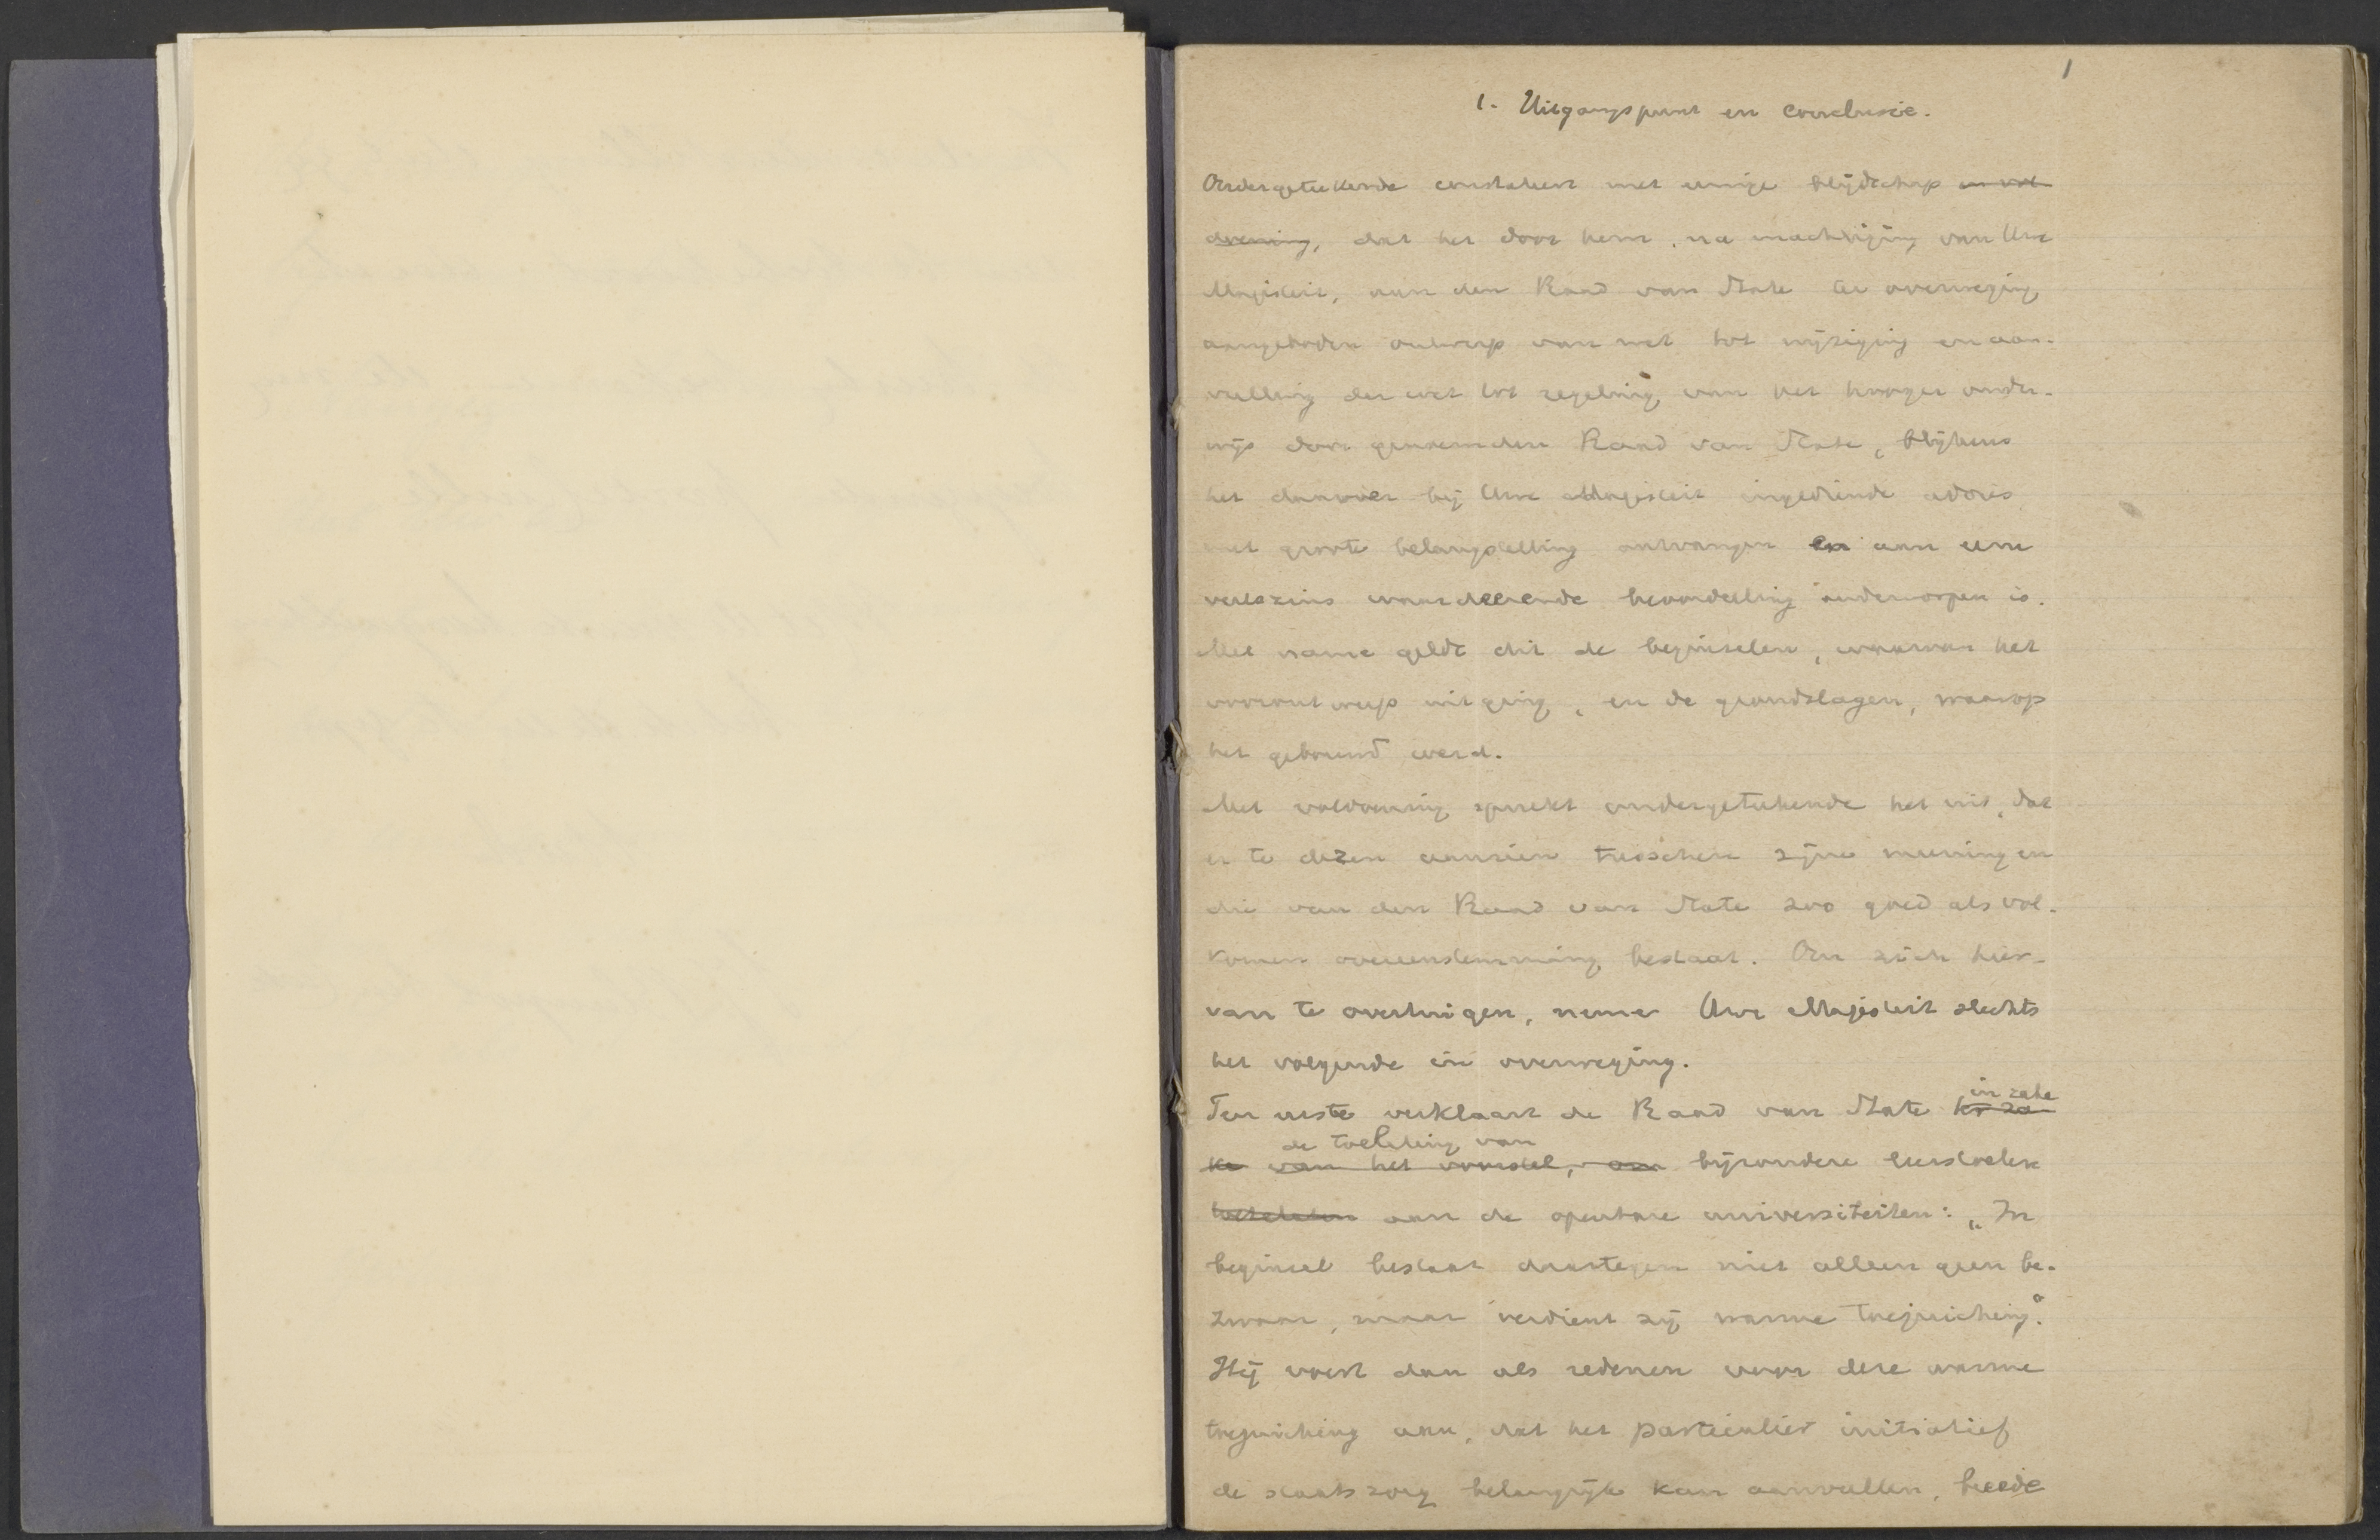 1
1. Uitgangspunt en conclusie.
Ondergeteekende constateert met eenige blijdschap en vol-
doening, dat het door hem, na machtiging van Uwe
Majesteit, aan den Raad van State ter overweging
aangeboden ontwerp van wet tot wijziging en aan-
vulling der wet tot regeling van het hooger onder-
wijs door genoemden Raad van State, blijkens
het daarover bij Uwe Majesteit ingediende advies
met groote belangstelling ontvangen en aan eene
veelszins waardeerende beoordeeling onderworpen is.
Met name geldt dit de beginselen, waarvan het
voorontwerp uitging, en de grondslagen, waarop
het gebouwd werd.
Met voldoening spreekt ondergeteekende het uit, dat
er te dezen aanzien tusschen zijne meening en
die van den Raad van State zoo goed als vol-
komen overeenstemming bestaat. Om zich hier-
van te overtuigen, neme Uwe Majesteit slechts
het volgende in overweging.
Ten eerste verklaart de Raad van State in zake
de toelating van
van het voorstel, om bijzondere leerstoelen
aan de openbare universiteiten: „In
beginsel bestaat daartegen niet alleen geen be-
zwaar, maar verdient zij warme toejuiching."
Hij voert dan als redenen voor deze warme
toejuiching aan, dat het particulier initiatief
de staatszorg belangrijk kan aanvullen, beede